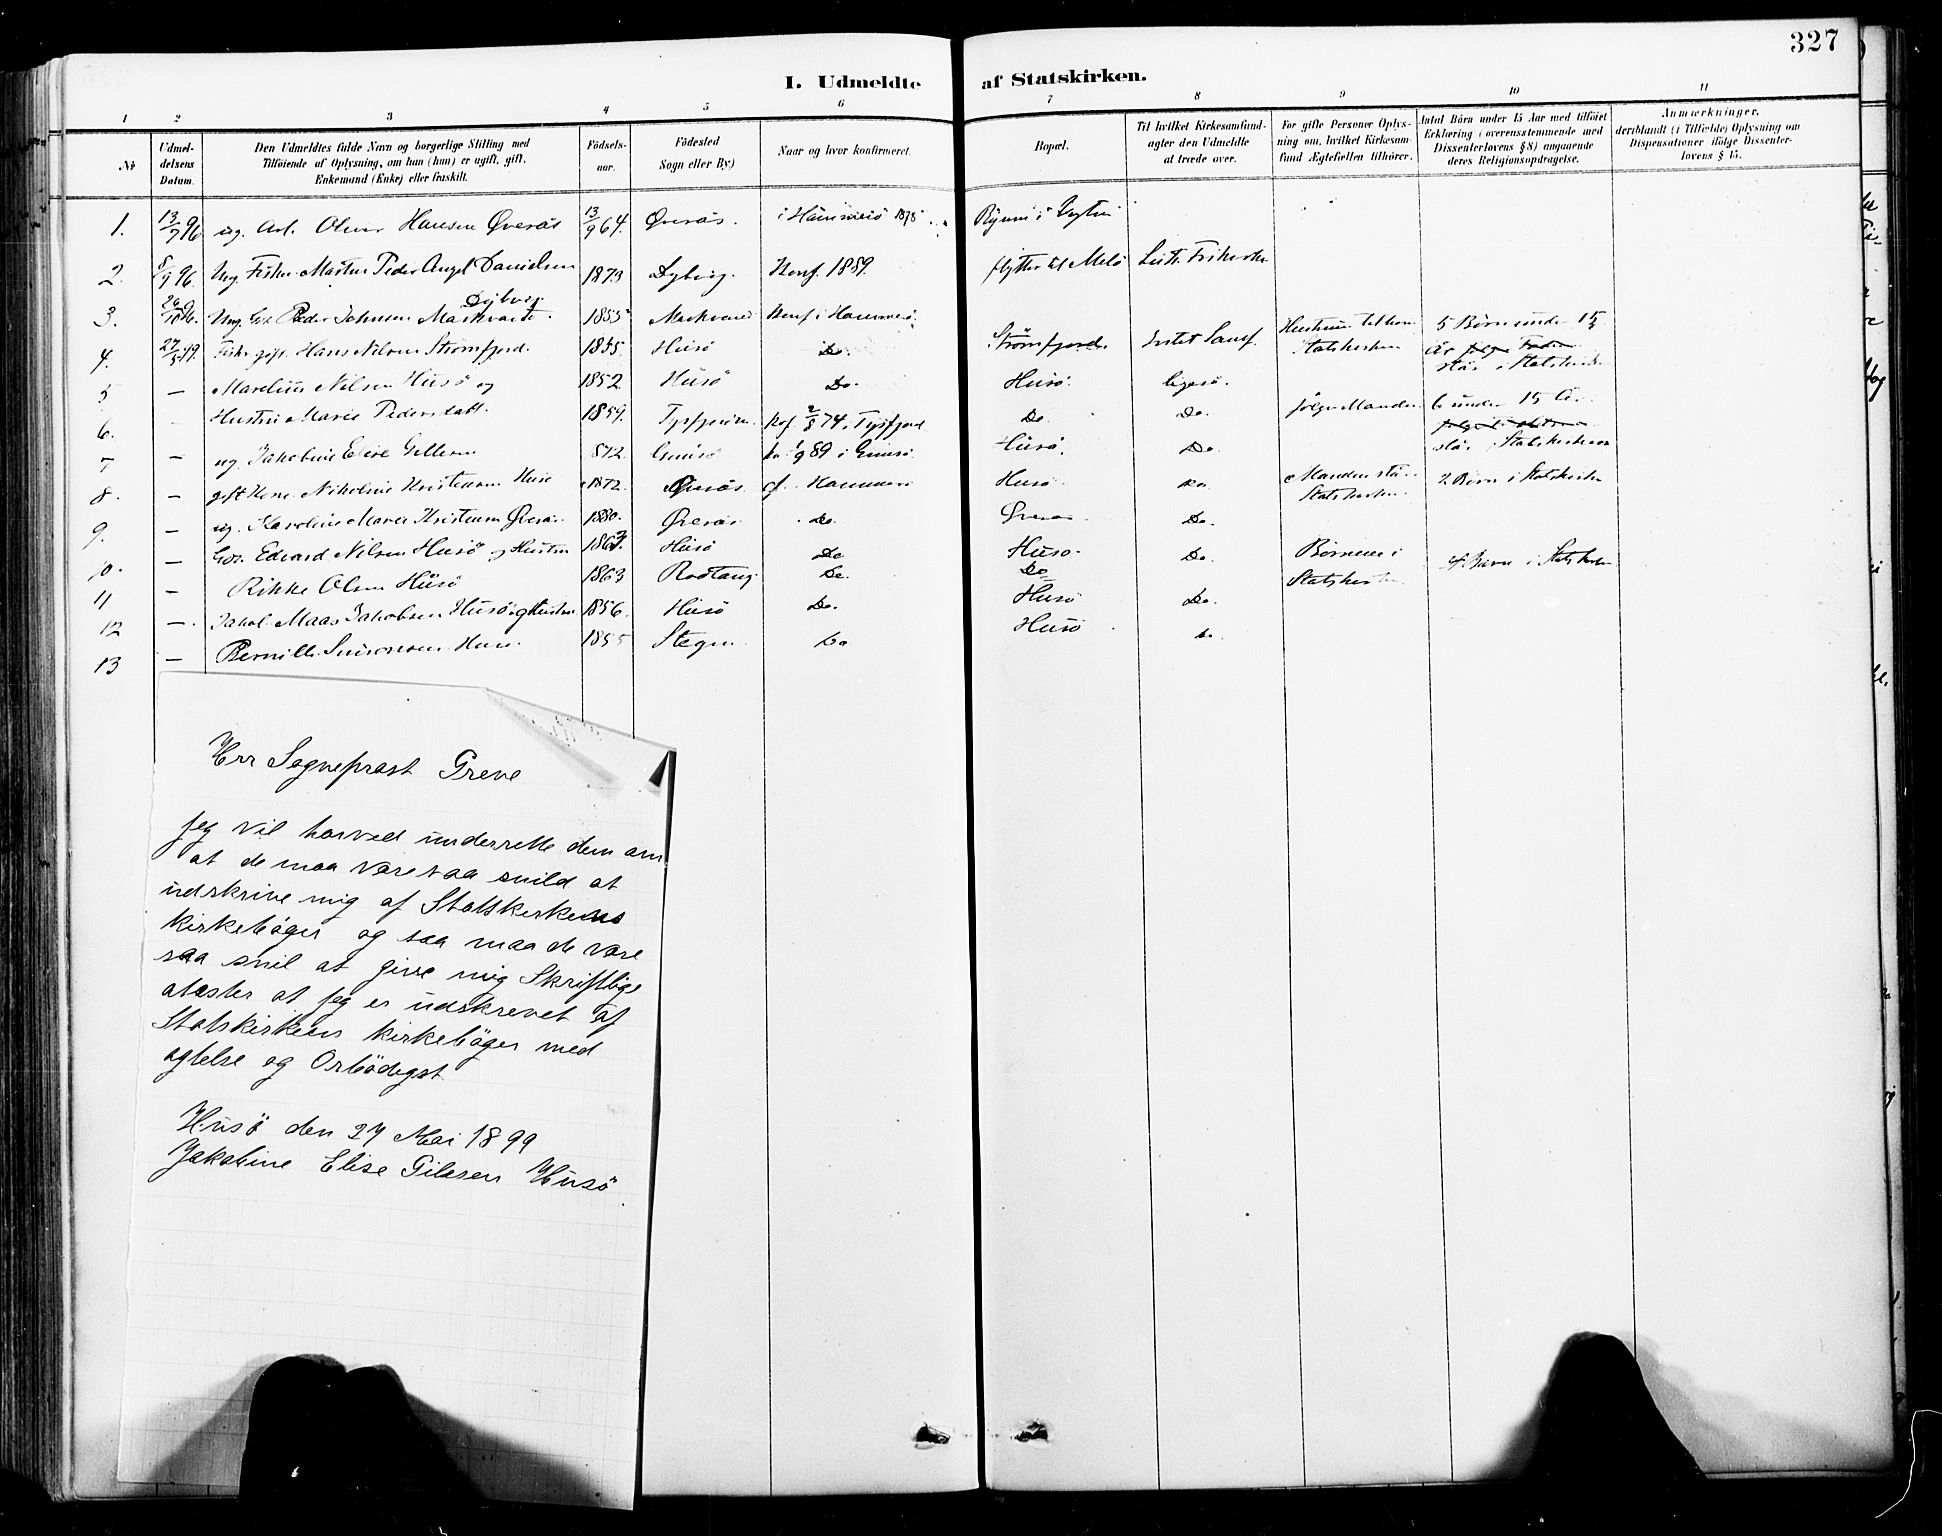 327
I. Udmeldte af Statskirken.
1 2 3 4 5 6 7 8 9 10 11
No
Udmeldelsens Datum.
Den Udmeldtes fulde Navn og borgerlige Stilling med
Tilføiende af Oplysning, om han (hun) er ugift, gift,
Enkemand (Enke) eller fraskilt.
Födselsaar.
Födested
Sogn eller By)
Naar og hvor konfirmeret.
Bopæl.
Til hvilket Kirkesamfund-
agter den Udmeldte
at træde over.
For gifte Personer Oplys-
ning om, hvilket Kirkesam-
fund Ægtefællen tilhører.
Antal Börn under 15 Aar med tilföiet
Erklæring (overensstemmende med
Dissenterlovens § 8) angaaende
deres Religionsopdragelse.
Anmærkninger,
deriblandt (i Tilfælde) Oplysning om
Dispensationer ifölge Dissenter-
lovens § 15.
1. 13/7 96 ug. Arb. Oluf Hansen Øveraas 13/9 64. Øveraas. i Hammerö 1878
2. 8/9 96. Ung. Fisker Martin Peder Angel Danielsen 1873 Dyberg. Konf. 1889. flytter til Melö Luth. Frikirke
Dyberg
3. 26/10 96. Ung. Peder Johnsen Markvard. 1855 Markvard Konf. i Hammerö.
4. 27/5 99. Fisk. gift. Hans Nilsen Strömfjord. 1835 Husö Do. Strömfjord. Intet Samf. Hustruen tilhører Statskirken 5 Børn under 15 År står i Statskirken
5 — Marelius Nilsen Husö og 1852 Husö Do. Husö. ligesö.
6. Hustru Marie Pedersdatt. 1859. Tysfjord Kof. 2/8 74 i Tysfjord Do Do. følger Manden 6 under 15 År står i Statskirken
7 — ug. Jakobine Elise Gillesen 1872. Gimsö 89 i Gimsö Husö. Do.
8. — gift Kone Nikoline Kristensen Husö 1872. Øveraas Hammerö Husö Do. Manden står i Statskirken. 2 Børn i Statskirken
9. — ug. Karoline Marie Kristensen Øveraas 1880. Øveraas Do. Øveraas Do.
10. — Edvard Nilsen Husö og Hustru 1863. Husö Do Husö. Do. Børnene i Statskirken 4 Børn i Statskirken
11 — Rikke Olsen Husö 1863 Rødtang Do. Do
12 — Jakob Maas Jakobsen Husö og Hustru 1856. Husö Do. Husö Do.
13 — Pernille Simonsen Husö 1855 Stegen Do Husö Do.
Herr Sogneprest Greve
Jeg vil harved underrette dem om
at de maa være saa snild at
udskrive mig af Statskirkens
kirkebøger og saa maa de være
saa snil at give mig Skriftlige
atæster at jeg er udskrevet af
Statskirkens kirkebøger med
agtelse og Orbødigst
Husö den 27 Mai 1899
Jakobine Elise Gilesen Husö